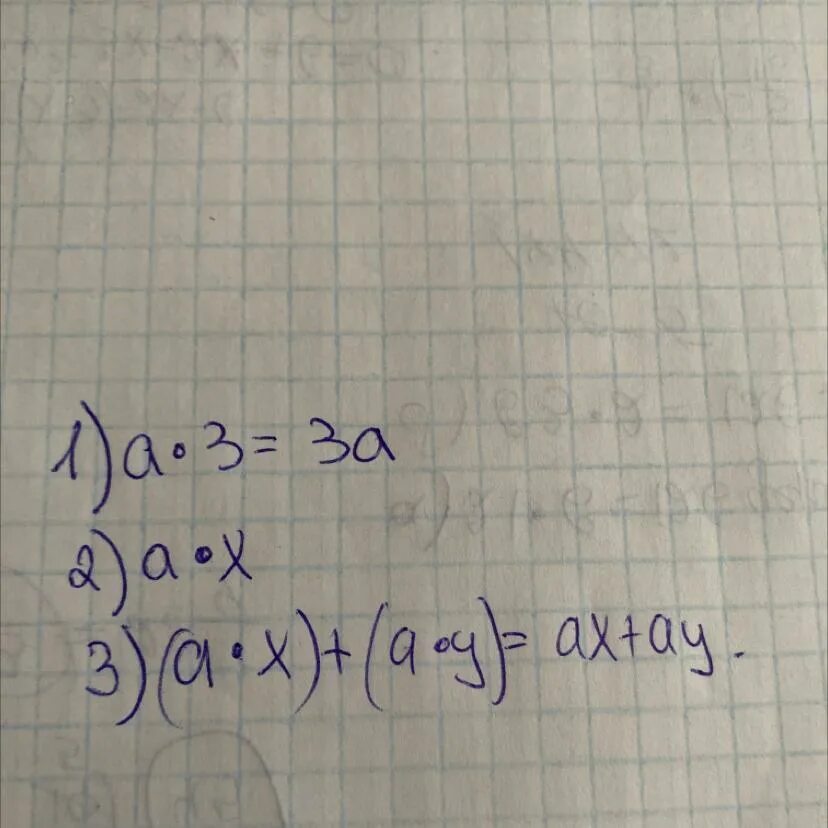 1) a · 3 = 3a
2) a · x
3) (a · x) + (a · y) = ax + ay.